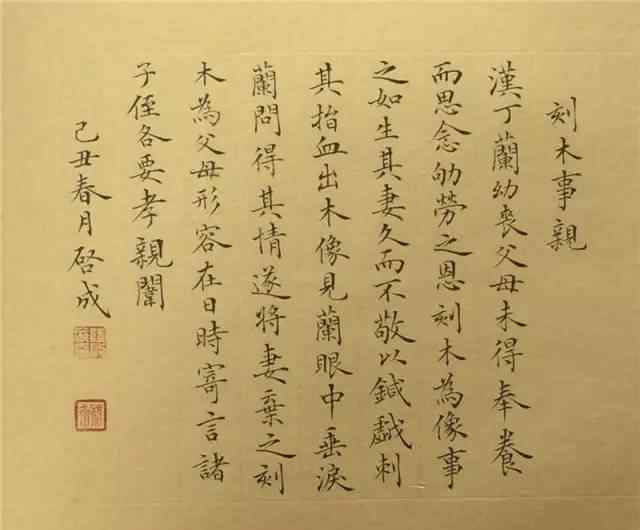 刻木事親
漢丁蘭幼喪父母未得奉養
而思念劬勞之恩刻木為像事
之如生其妻久而不敬以鍼戲刺
其指血出木像見蘭眼中垂淚
蘭問得其情遂將妻棄之刻
木為父母形容在日時寄言諸
子侄各要孝親闈
己丑春月啓成